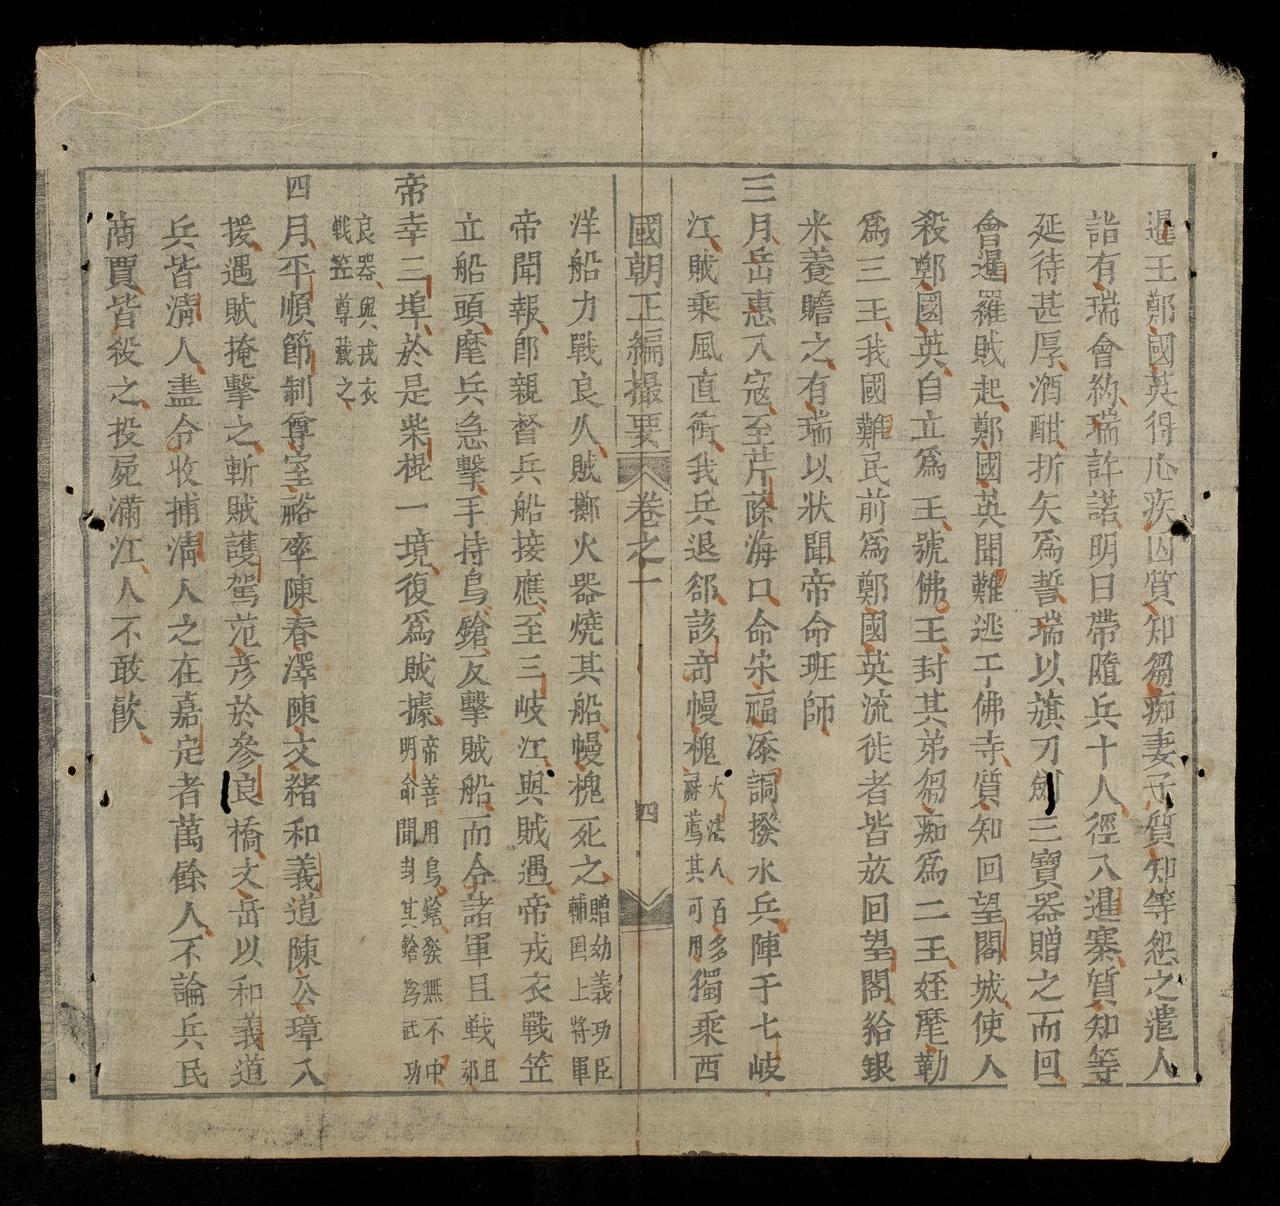 暹王鄭國英得心疾囚質知芻痴妻子質知等怨之遣人
詣有瑞會約瑞許諾明日帶隨兵十人徑入暹寨質知等
延待甚厚酒酣折矢為誓瑞以旗刀劍三寶器贈之而回
會暹羅賊起鄭國英聞難逃于佛寺質知回望閣城使人
殺鄭國英自立爲王號佛王封其弟芻痴爲二王姪摩勒
爲三王我國難民前爲鄭國英流徙者皆放回望閣給銀
米養贍之有瑞以狀聞帝命班師
三月岳惠入寇至芹蒢海口命宋福添調撥水兵陣于七岐
江賊乘風直衝我兵退郤該奇幔槐大法人百多祿薦其可用獨乘西
國朝正編撮要 卷之一 四
洋船力戰良久賊擲火器燒其船幔槐死之贈幼義功臣輔囯上將軍
帝聞報郎親督兵船接應至三岐江與賊遇帝戎衣戰笠
立船頭麾兵急擊手持鳥鎗反擊賊船而令諸軍且戦且郤
帝幸三埠於是柴棍一境復爲賊據帝善用鳥鎗發無不中明命間封其鎗爲武功
良器與戎衣戦笠尊藏之
四月平順節制尊室𥙿率陳春澤陳文緒和義道陳公璋入
援遇賊掩擊之斬賊護駕范彥於參良橋文岳以和義道
兵皆淸人盡令收捕淸人之在嘉定者萬餘人不論兵民
商賈皆殺之投屍滿江人不敢飲